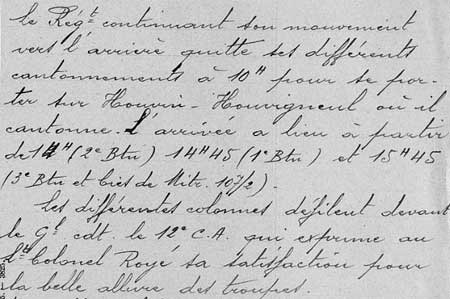 le Rég^t continuant son mouvement
vers l'arrière quitte ses différents
cantonnements à 10^H pour se por-
ter sur Houvin-Houvigneul où il
cantonne. L'arrivée a lieu à partir
de 14^H (2^e Btn) 14^H45 (1^e Btn) et 15^H45
(3^e Btn et Cies de Mitr. 107/2).
Les différentes colonnes défilent devant
le G^l cdt. le 12^e C.A. qui exprime au
L^t Colonel Roye sa satisfaction pour
la belle allure des troupes.